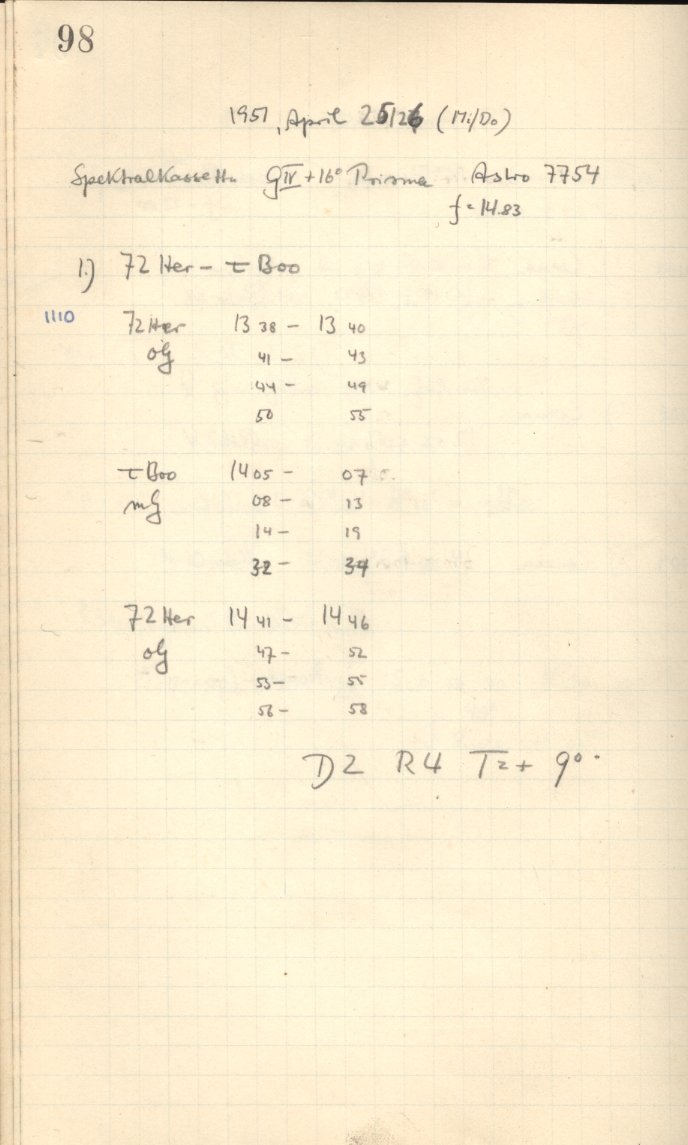 98
1951, April 25/26 (Mi/Do)
Spektralkassette GIV + 16° Prisma Astro 7754
f = 14.83
1.) 72 Her – τ Boo
1110 72 Her 13 38 – 13 40
oG 41 – 43
44 – 49
50 55
τ Boo 14 05 – 07
mG 08 – 13
14 – 19
32 – 34
72 Her 14 41 – 14 46
oG 47 – 52
53 – 55
56 – 58
D2 R4 T = + 9°